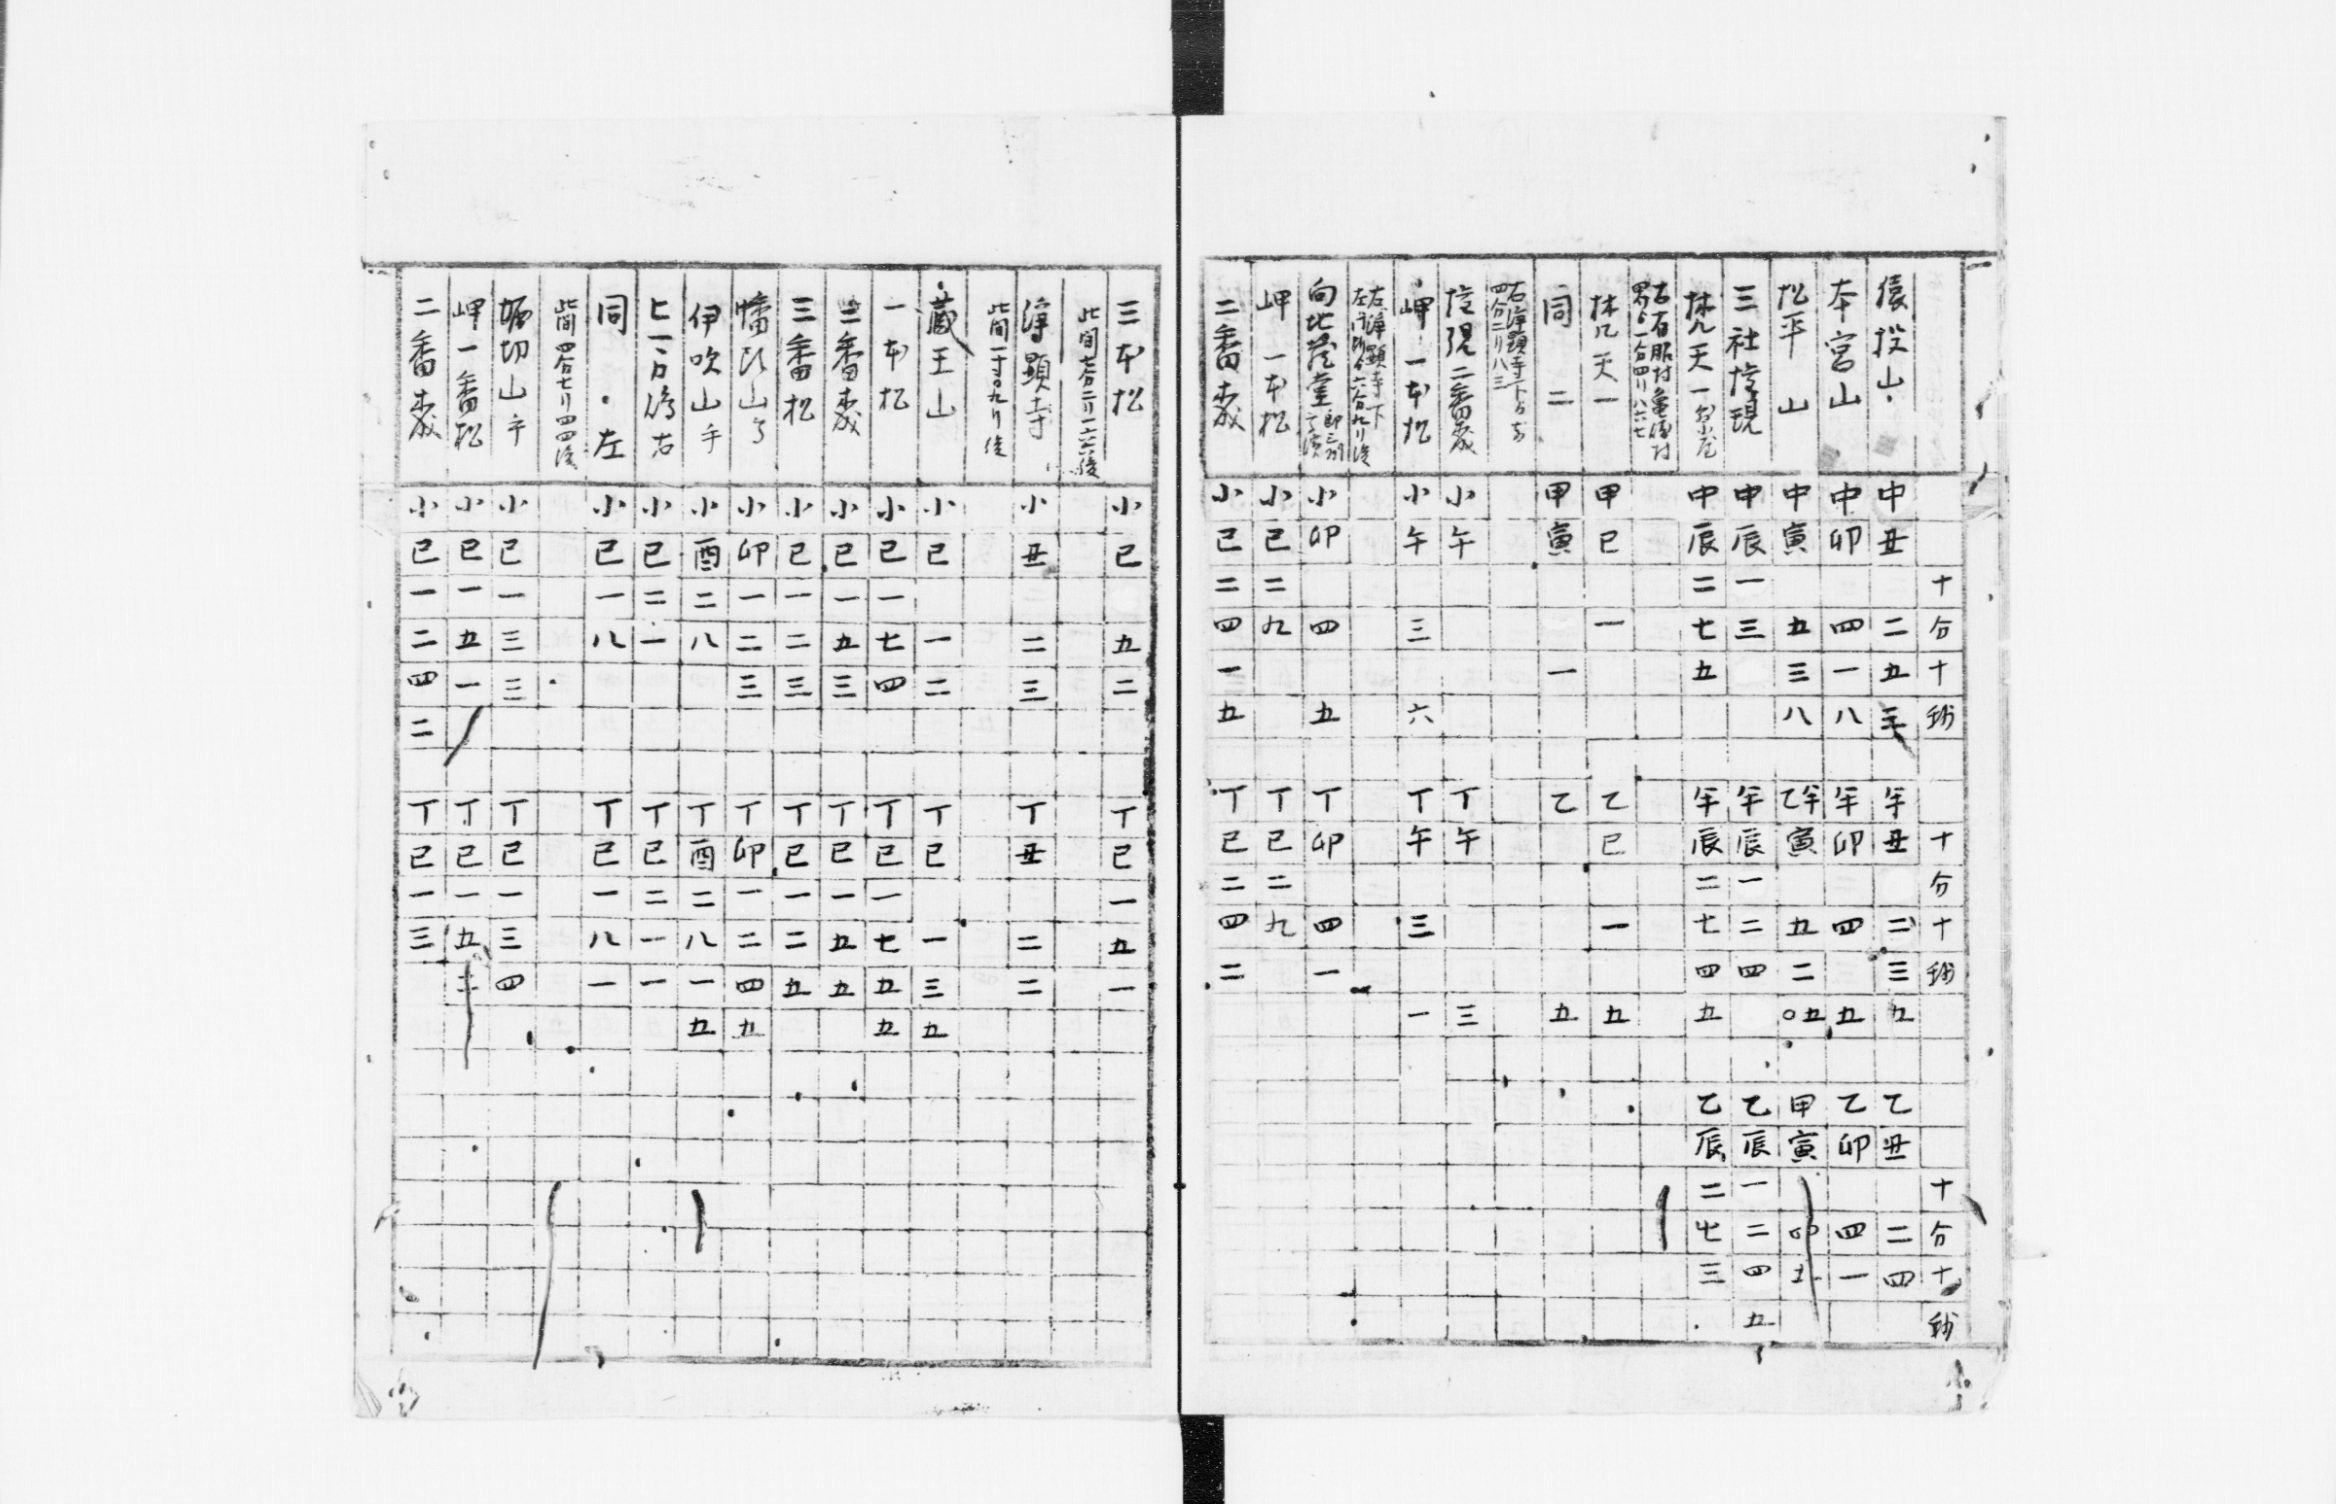 十分十秒 十分十秒 十分十秒
猿投山 中丑 二五 午丑 二三九 乙丑 二四
本宮山 中卯 四一八 午卯 四 五 乙卯 四一
松平山 中寅 五三八 乙午寅 五二五 甲寅
三社権現 中辰一三 午辰一二四 乙辰一二四五
梵天一 中辰二七五 午辰二七四五 乙辰二七三
梵天一 甲巳 一 乙巳 一 五
同二 甲寅 一 乙 五
権現二番森 小午 丁午 三
岬一本松 小午 三 六 丁午 三 一
向地蔵堂 小卯 四 五 丁卯 四一
岬一本松 小巳二九 丁巳二九
二番森 小巳二四一五 丁巳二四二
三本松 小巳 五二 丁巳一五一
此間七分二リ一六六後
浄顕寺 小丑 二三 丁丑 二二
此間一寸〇九リ後
蔵王山 小巳 一二 丁巳 一三五
一本松 小巳一七四 丁巳一七五五
二番森 小巳一五三 丁巳一五五
三番松 小巳一二三 丁巳一二五
幡頭山 小卯一二三 丁卯一二四五
伊吹山 小酉二八 丁酉二八一五
小巳二一 丁巳二一一
同 左 小巳一八 丁巳一八一
此間四分七リ四四後
堀切山 小巳一三三 丁巳一三四
岬一番松 小巳一五一 丁巳一五
二番森 小巳一二四二 丁巳一三